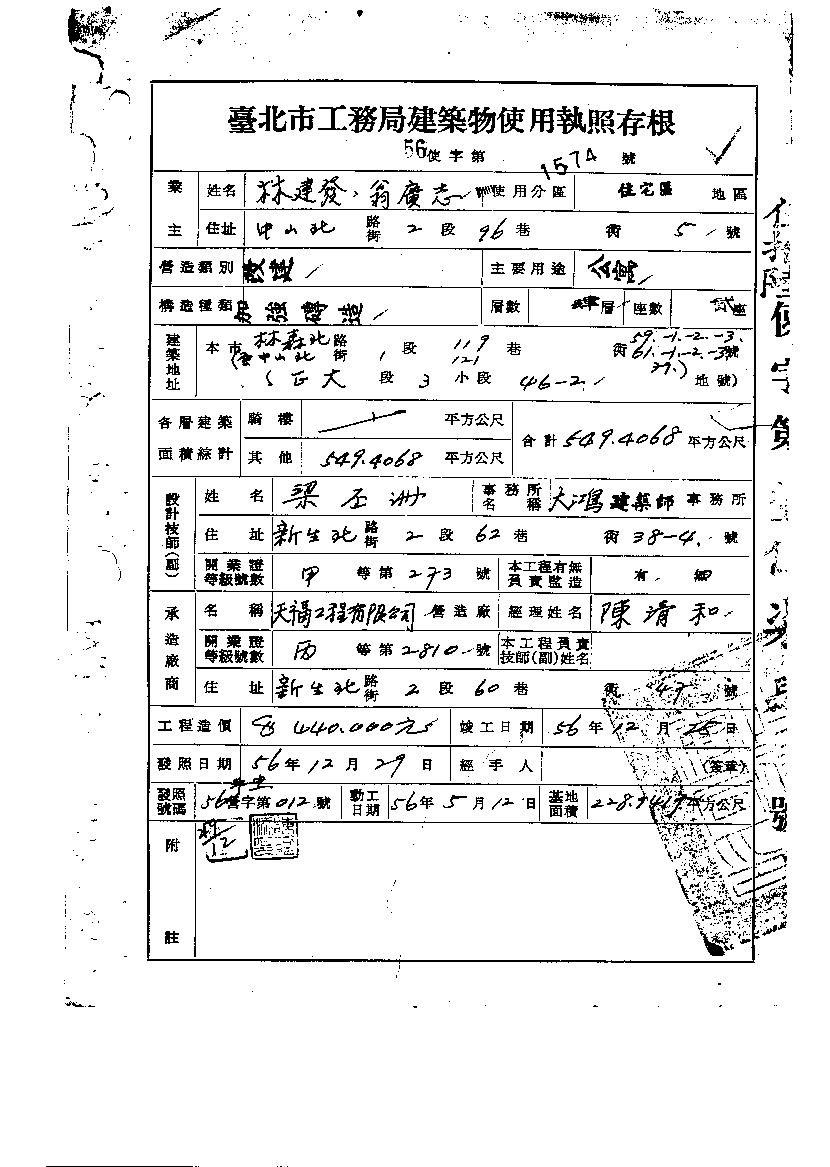 臺北市工務局建築物使用執照存根
56使字第 1574 號
業主 姓名 林建發、翁廣志 使用分區 住宅區 地區
住址 中山北 路街 2 段 96 巷 衖 5 號
營造類別 改建 主要用途 公寓
構造種類 加強磚造 層數 肆層 座數 貳座
建築地址 本市 林森北 路街 1 段 119 121 巷 衖 59.-1.-2.-3. 61.-1.-2.-3號
中山北
(正大 段 3 小段 46-2. 地號)
各層建築面積綜計 騎樓 平方公尺 合計 549.4068 平方公尺
其他 549.4068 平方公尺
設計技師(副) 姓名 梁丕洲 事務所名稱 大鴻建築師事務所
住址 新生北 路街 2 段 62 巷 衖 38-4. 號
開業證等級號數 甲 等第 273 號 本工程有無負責監造 有. 無
承造廠商 名稱 天福工程有限公司 營造廠 經理姓名 陳清和
開業證等級號數 丙 等第 2810 號 本工程負責技師(副)姓名
住址 新生北 路街 2 段 60 巷 衖 47 號
工程造價 440.000元 竣工日期 56年12月25日
發照日期 56年12月29日 經手人 (簽章)
發照號碼 56營字第012號 動工日期 56年5月12日 基地面積 228.9417平方公尺
附註
29/12
伍拾陸使字第
號